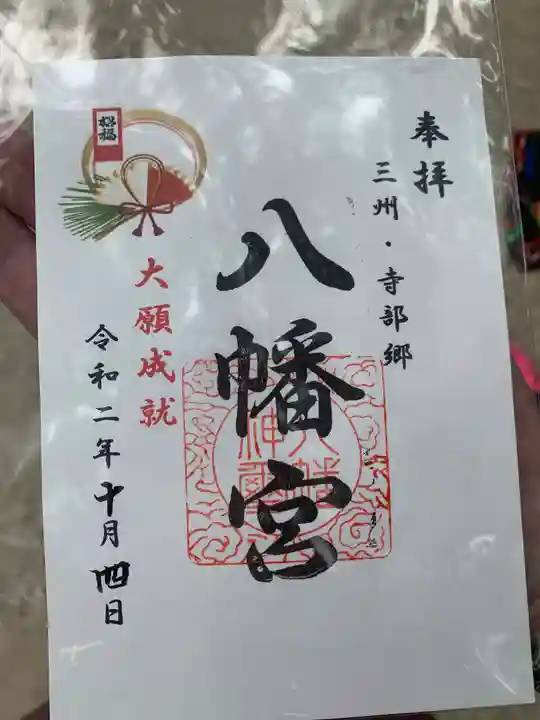 奉拝
三州・寺部郷
八幡宮
八幡
神璽
招福
大願成就
令和二年十月四日